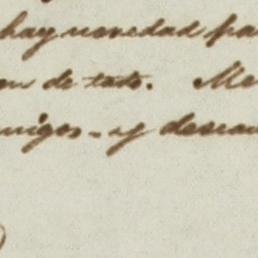 hay novedad pa
on de tato. Me
migos - y desean